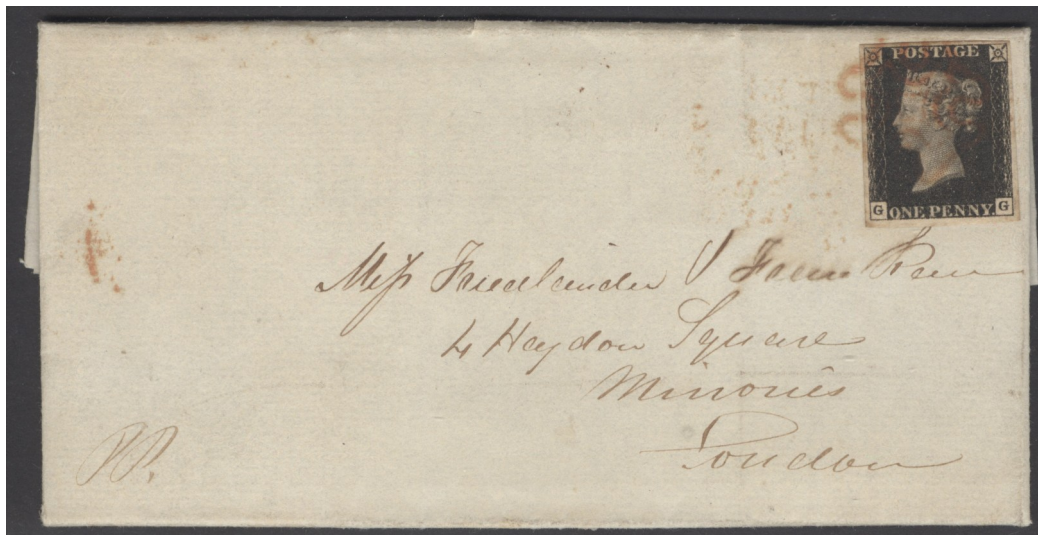 POSTAGE
G ONE PENNY. G
Miss Friedlander
4 Haydon Square
Minories
London
PP.